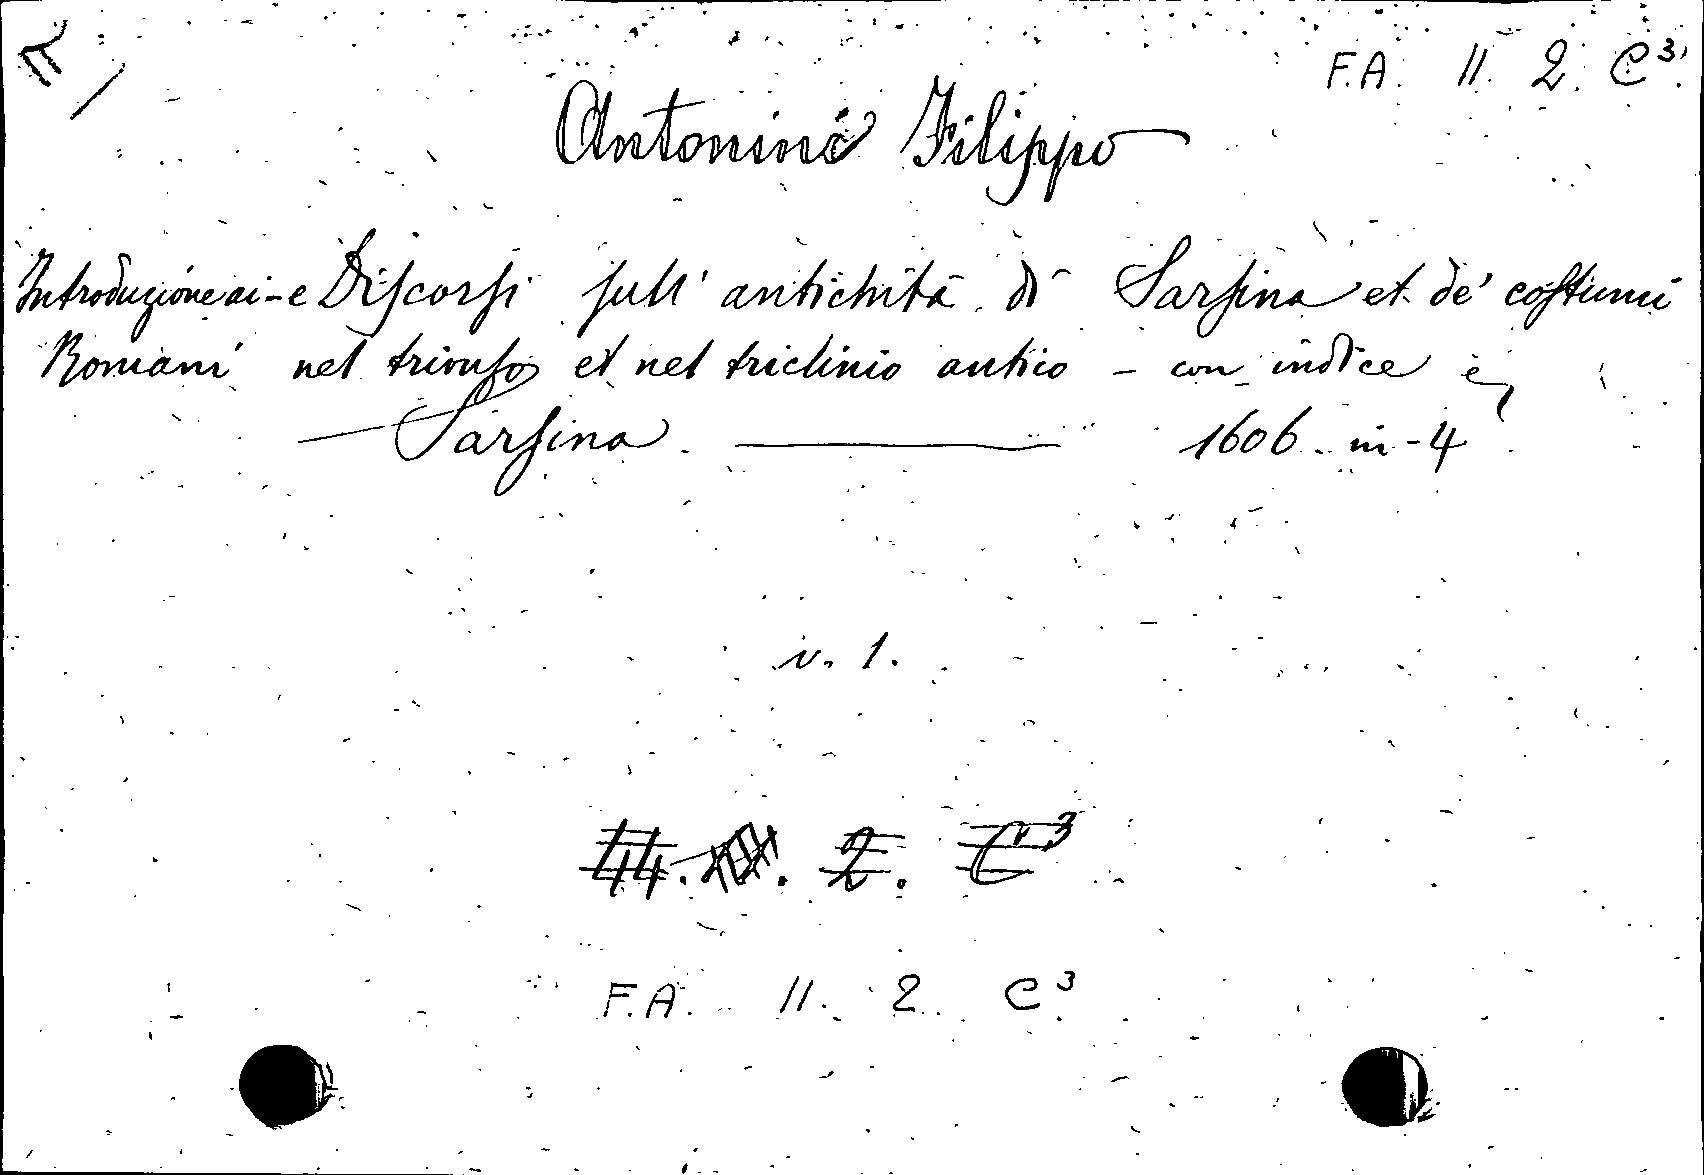 F.A. 11. 2. C³
Antonini Filippo
Introduzione ai - e Discorsi sull' antichità di Sarsina et de' costumi
Romani nel trionfo et nel triclinio antico - con indice
Sarsina. 1606 in-4
v. 1.
44. 2. C³
F.A. 11. 2. C³